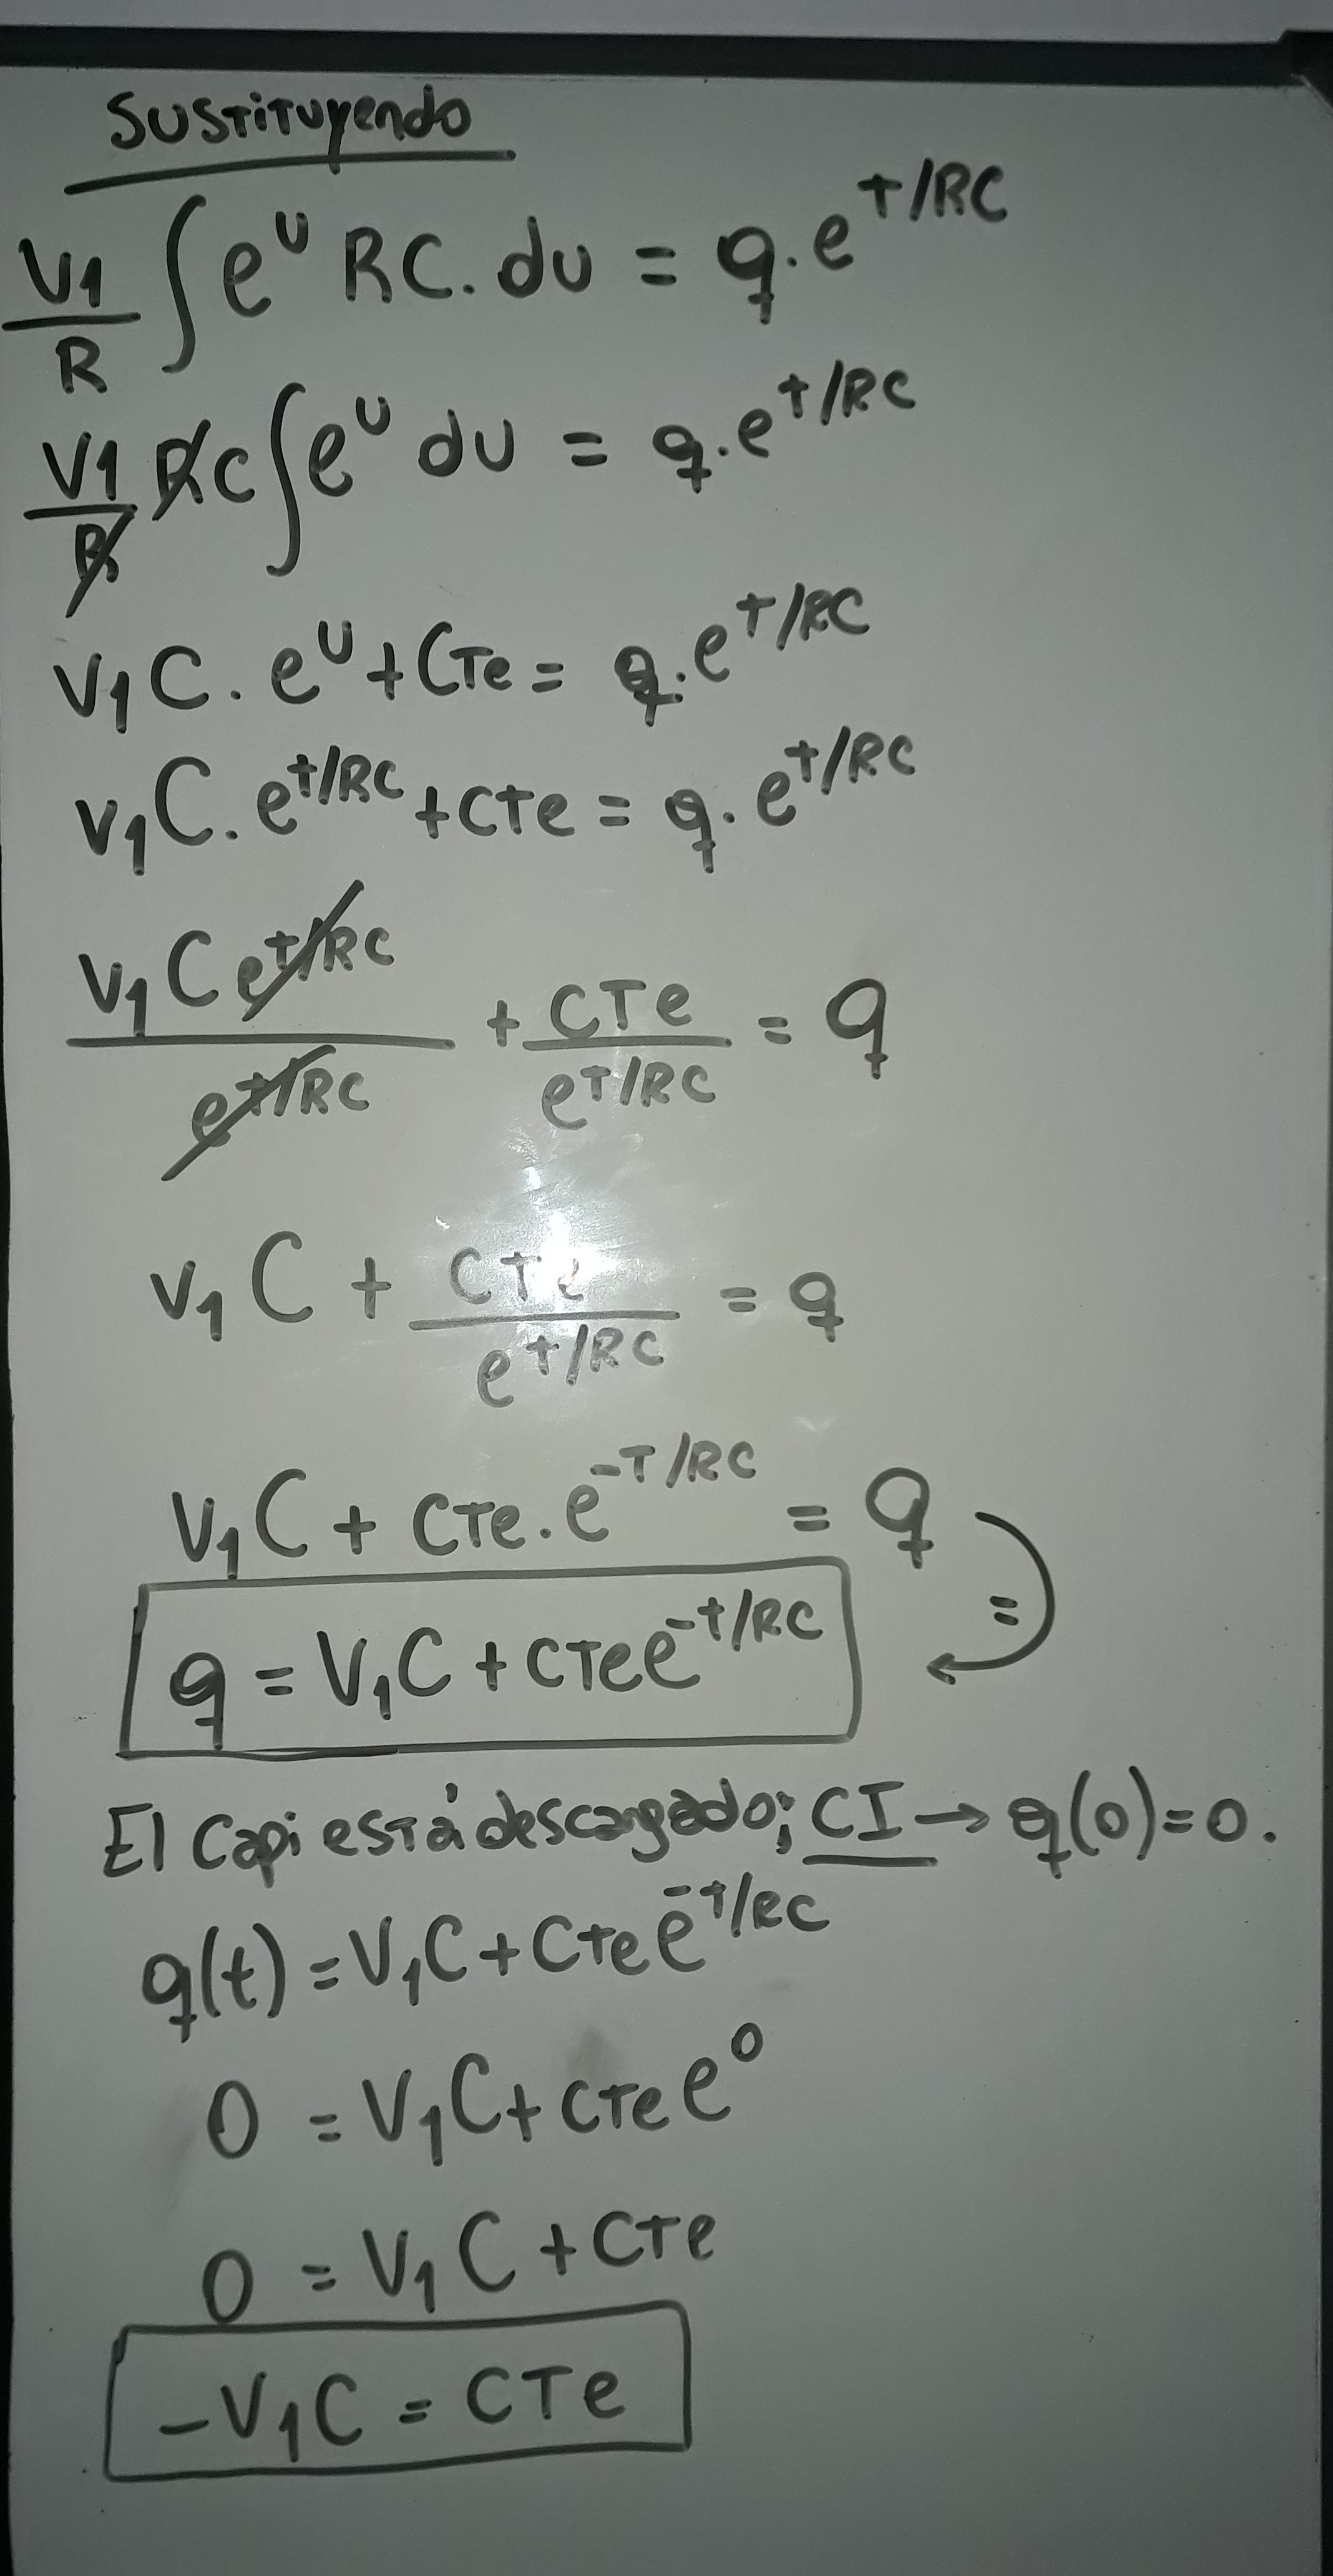 Sustituyendo
V1/R ∫ e^u RC. du = q. e^t/RC
V1/R RC ∫ e^u du = q. e^t/RC
V1C. e^u + CTe = q. e^t/RC
V1C. e^t/RC + CTe = q. e^t/RC
V1 C e^t/RC / e^t/RC + CTe / e^T/RC = q
V1 C + CTe / e^t/RC = q
V1C + CTe. e^-T/RC = q
=
q = V1C + CTe e^-t/RC
El Capi está descargado; CI → q(0)=0.
q(t) = V1C + CTe e^-t/RC
0 = V1C + CTe e^0
0 = V1C + CTe
-V1C = CTe